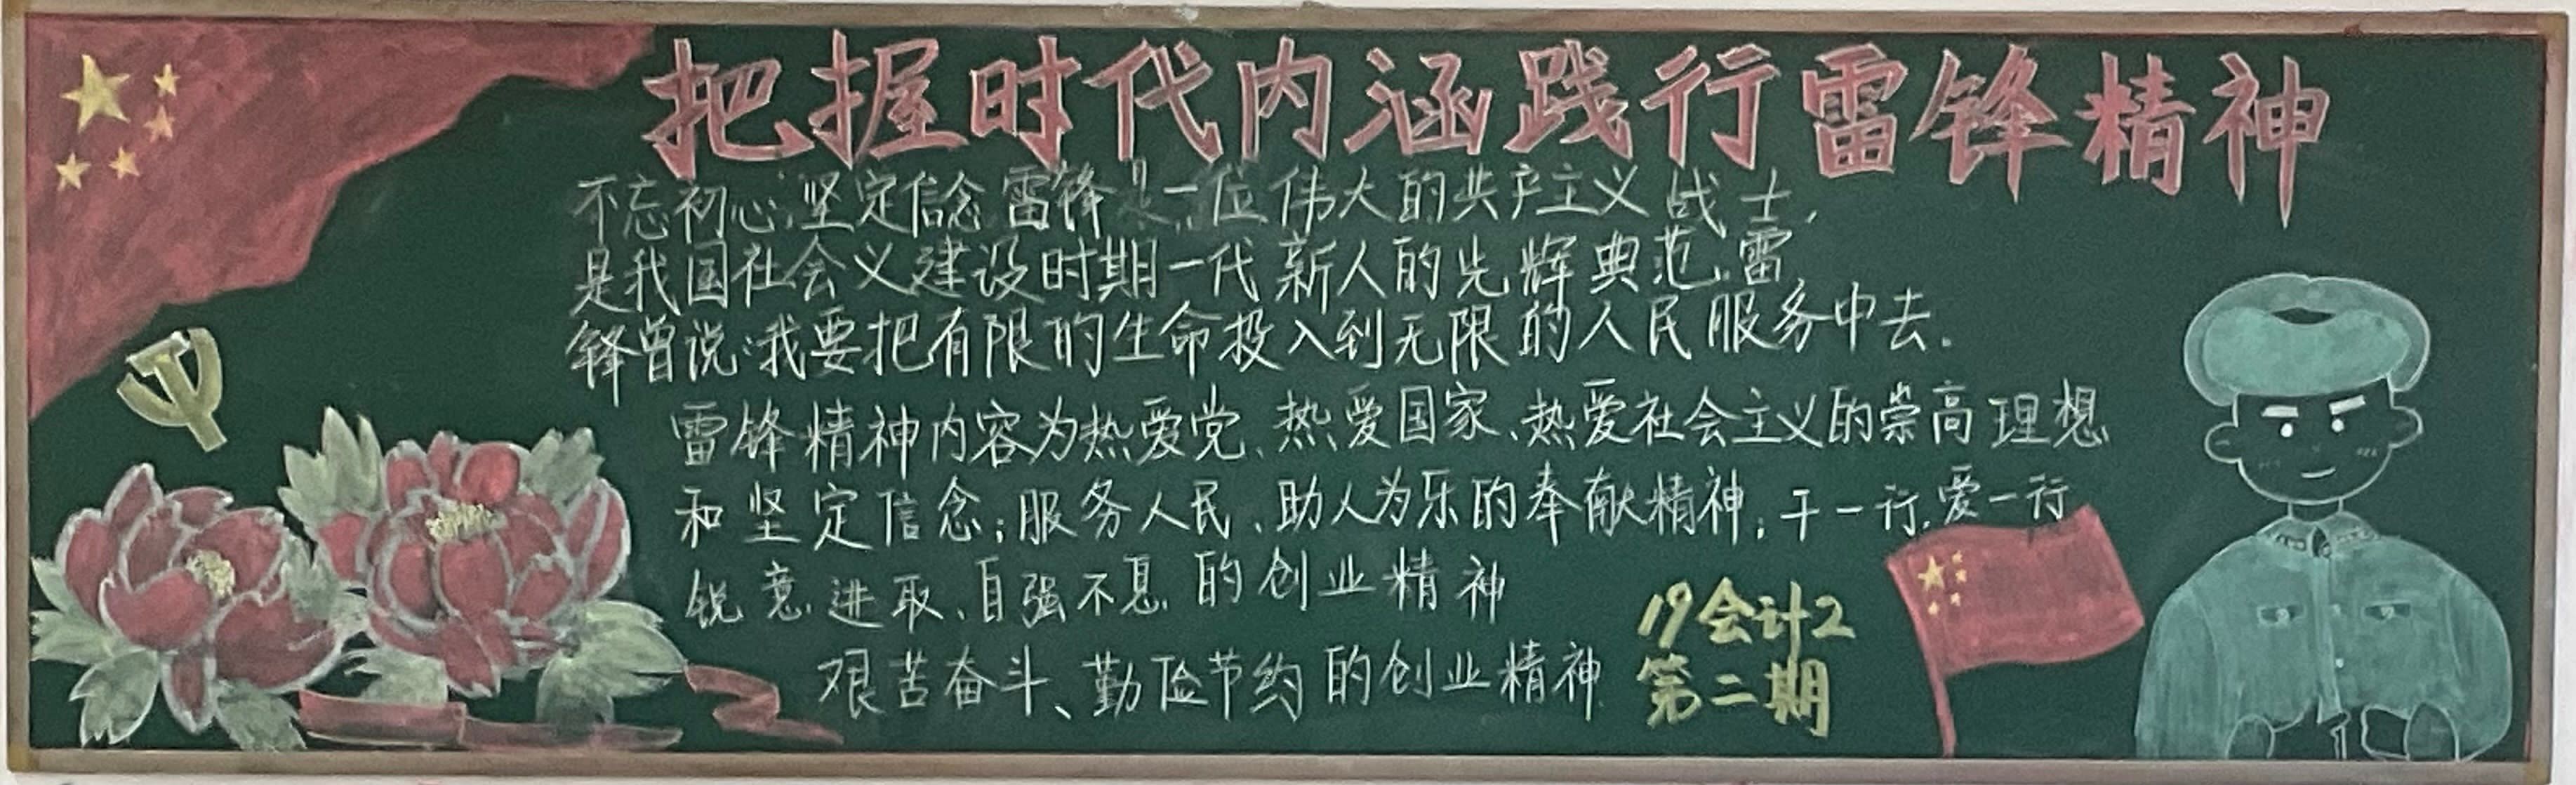 把握时代内涵践行雷锋精神
不忘初心,坚定信念雷锋是一位伟大的共产主义战士,
是我国社会义建设时期一代新人的先辉典范.雷
锋曾说:我要把有限的生命投入到无限的人民服务中去.
雷锋精神内容为热爱党、热爱国家、热爱社会主义的崇高理想
和坚定信念;服务人民、助人为乐的奉献精神;干一行,爱一行
锐意进取、自强不息的创业精神
艰苦奋斗、勤俭节约的创业精神
19会计2
第二期